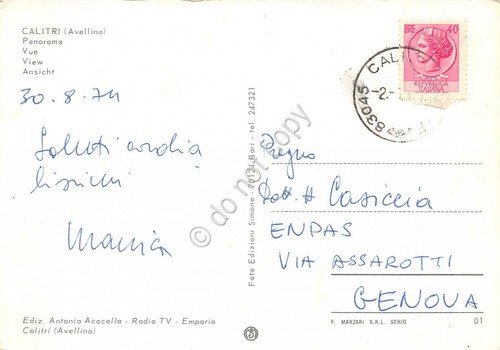 CALITRI (Avellino)
Panorama
Vue
View
Ansicht
30.8.74
Saluti cordia
lissimi
Ediz. Antonio Acocella - Radio TV - Emporio
Calitri (Avellino)
Foto Edizioni Simone - 70124 Bari - tel. 247321
do not copy
LIRE 40
REPUBBLICA
ITALIANA
83045 CALI
-2-
Pregno
Dott. Casiccia
ENPAS
VIA ASSAROTTI
GENOVA
P. MARZARI S.R.L. SCHIO
01